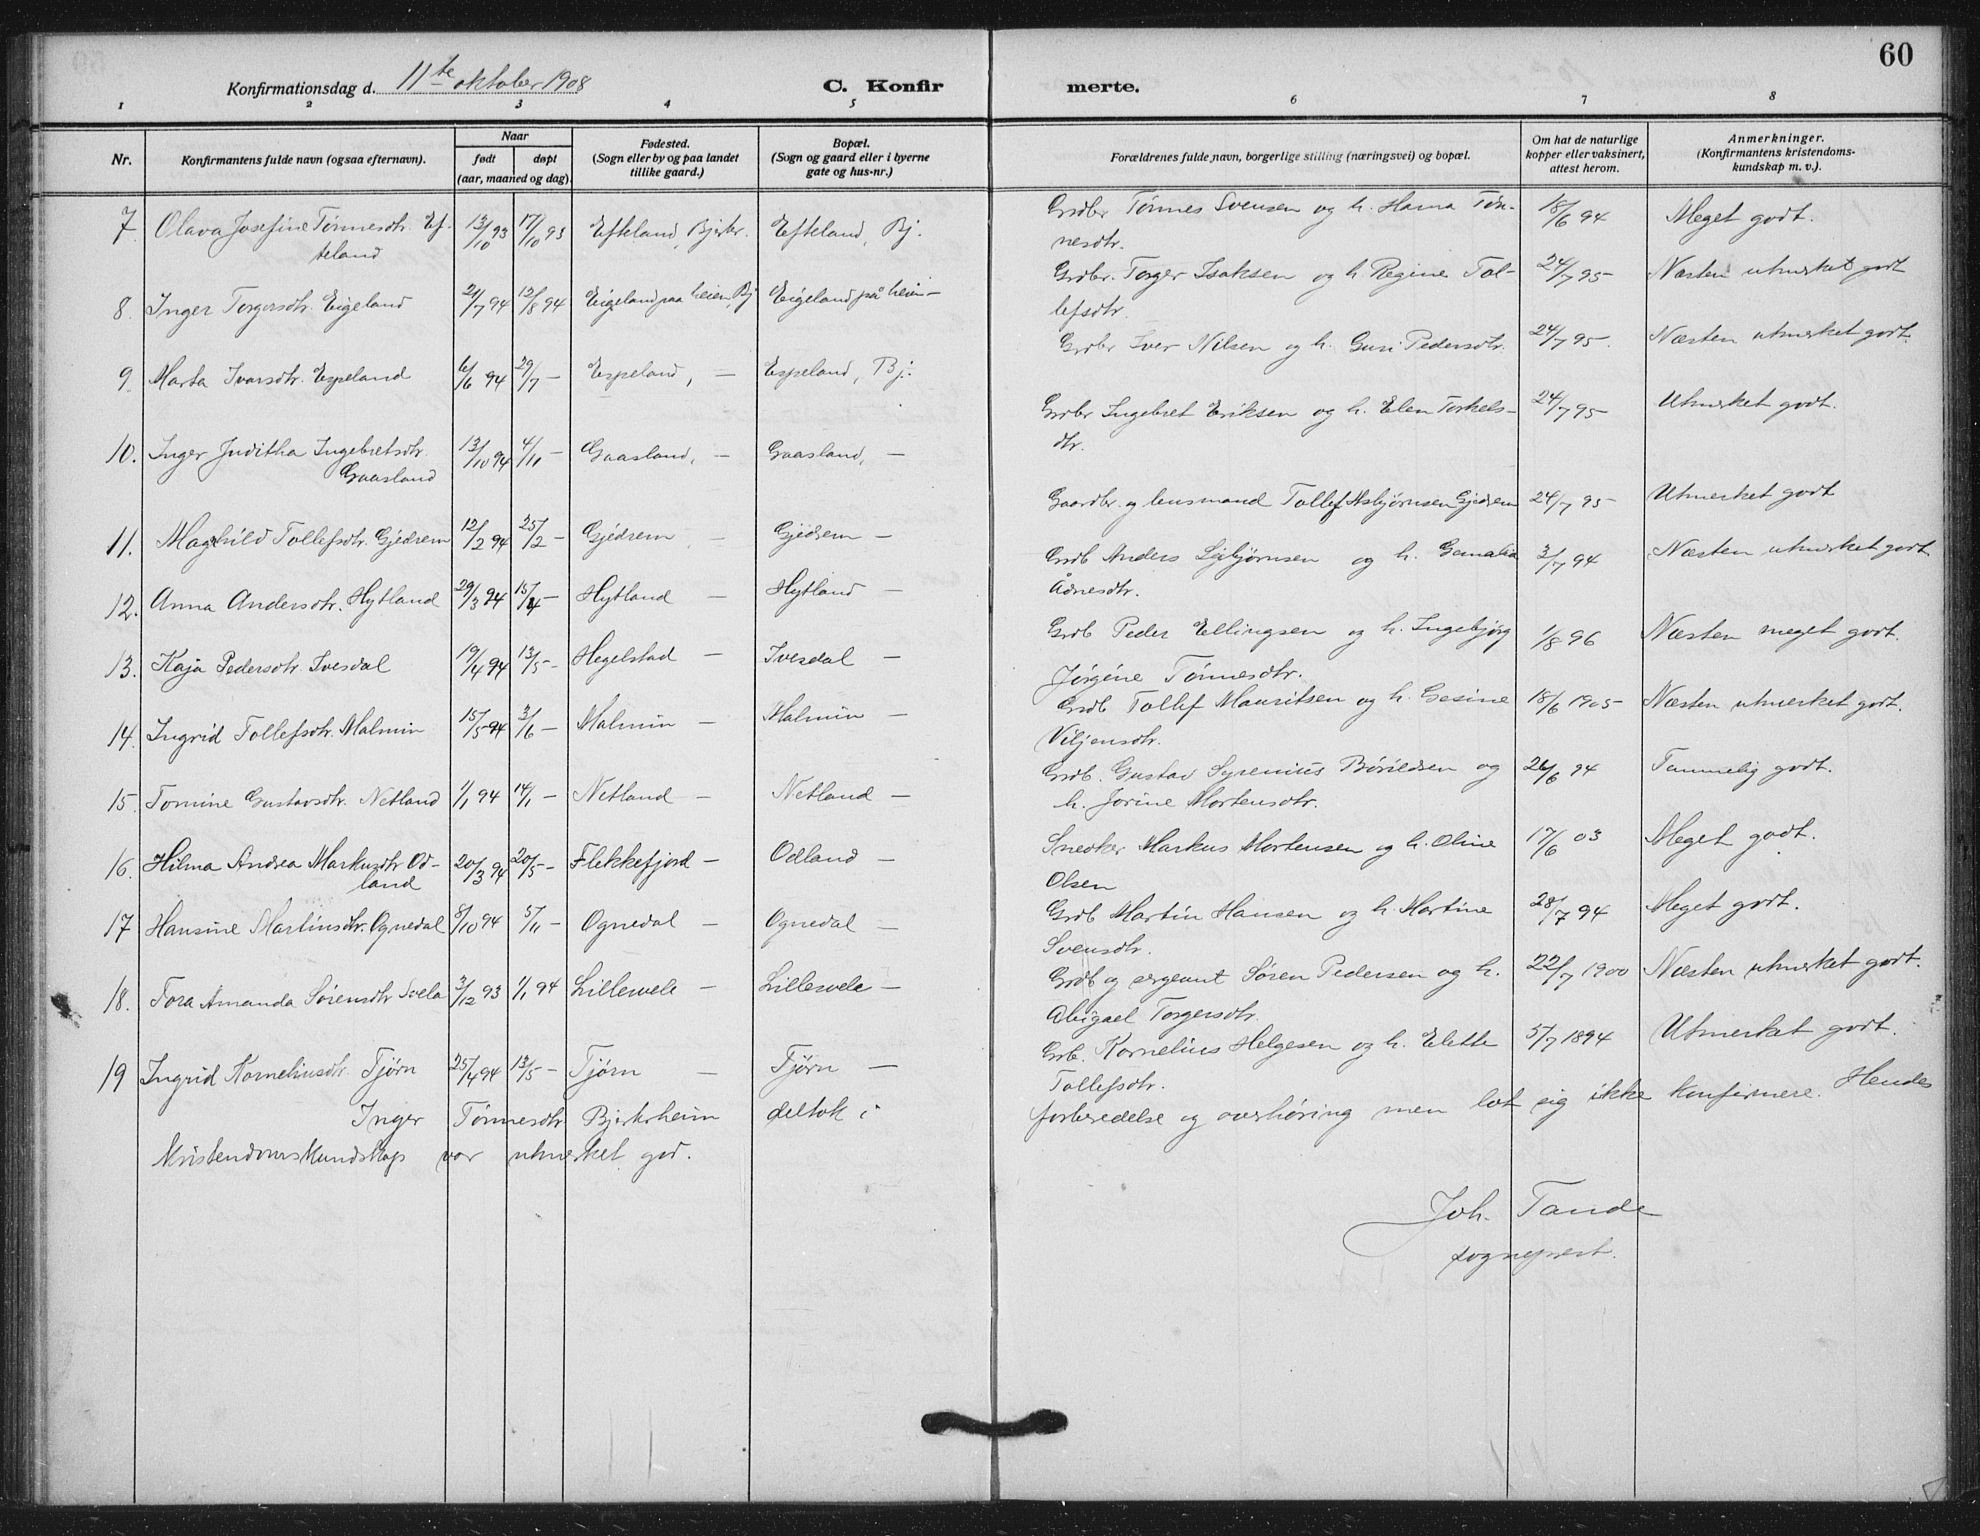 60
Konfirmationsdag d. 11te oktober 1908
C. Konfir
merte.
1 2 3 4 5 6 7 8
Nr.
Konfirmantens fulde navn (ogsaa efternavn).
Naar
født døpt
(aar, maaned og dag).
Fødested.
(Sogn eller by og paa landet
tillike gaard.)
Bopæl.
(Sogn og gaard eller i byerne
gate og hus-nr.)
Forældrenes fulde navn, borgerlige stilling (næringsvei) og bopæl.
Om hat de naturlige
kopper eller vaksinert,
attest herom.
Anmerkninger.
(Konfirmantens kristendoms-
kundskap m. v.).
7. Olava Josefine Tønnesdtr. Ef- 13/10 93 17/10 93 Efteland, Bjerkr. Efteland, Bj. Grdbr Tønnes Svensen og h. Hanna Tøn- 18/6 94 Meget godt.
teland nesdtr.
8. Inger Torgersdtr. Eigeland 21/7 94 12/8 94 Eigeland paa heien, Bj Eigeland på heien — Grdbr. Torger Isaksen og h. Regine Tol- 24/7 95 Næsten utmerket godt
lefsdtr.
9. Marta Ivarsdtr. Espeland 6/6 94 29/7 — Espeland, — Espeland, Bj. Grdbr Iver Nilsen og h. Guri Pedersdtr. 24/7 95. Næsten utmerket godt.
10. Inger Juditha Ingebretsdtr. 13/10 94 4/11 — Gaasland, — Gaasland, — Grdbr Ingebret Eriksen og h. Elen Torkels- 24/7 95 Utmerket godt.
Gaasland dtr.
11. Maghild Tollefsdtr. Gjedrem 12/2 94 25/2 — Gjedrem — Gjedrem — Gaardbr. og lensmand Tollef Asbjørnsen Gjedrem 24/7 95 Utmerket godt
12. Anna Andersdtr. Hytland 29/3 94 15/4 — Hytland — Hytland — Grdb Anders Leibjørnsen og h. Gamalia 3/7 94 Næsten utmerket godt
Ådnesdtr.
13. Kaja Pedersdtr. Ivesdal 19/4 94 13/5 — Hegelstad — Ivesdal — Grdb Peder Ellingsen og h. Ingebjørg 1/8 96 Næsten meget godt.
Jørgine Tønnesdtr.
14. Ingrid Tollefsdtr. Malmin 15/5 94 3/6 — Malmin — Malmin — Grdb Tollef Mauritsen og h. Gesine 18/6 1905 Næsten utmerket godt.
Viljensdtr.
15. Tomine Gustavsdtr. Netland 1/1 94 14/1 — Netland — Netland — Grdb. Gustav Syrenius Børildsen og 26/6 94 Temmelig godt.
h. Jorine Mortensdtr.
16. Hilma Andrea Markusdtr Od- 20/3 94 20/5 — Flekkefjord — Odland — Snedker Markus Mortensen og h. Oline 17/6 03 Meget godt.
land Olsen
17 Hansine Martinsdtr. Ognedal 8/10 94 5/11 — Ognedal — Ognedal — Grdb Martin Hansen og h. Martine 28/7 94 Meget godt.
Svensdtr.
18. Tora Amanda Sørensdtr Svela 3/12 93 1/1 94 Lillesvele — Lillesvele — Grdb og sergeant Søren Pedersen og h. 22/7 1900 Næsten utmerket godt.
Abigael Torgersdtr.
19 Ingrid Korneliusdtr. Tjørn 25/4 94 13/5 — Tjørn — Tjørn — Grb. Kornelius Helgesen og h. Elette 5/7 1894 Utmerket godt.
Tollefsdtr.
Inger Tønnesdtr Bjerkrheim deltok i forberedelse og overhøring men lot sig ikke konfirmere. Hendes
Kristendomskundskap var utmerket god.
Joh. Tande
sogneprest.